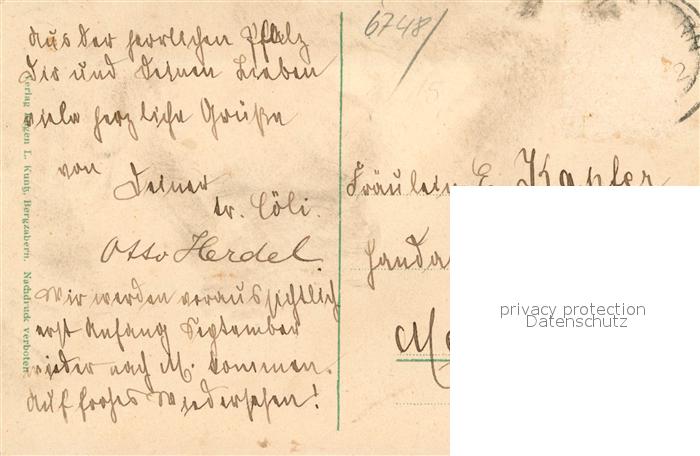 Aus der herrlichen Pfalz
Dir und Deinen Lieben
viele herzliche Grüße
von Deiner
tr. Cöli.
Otto Herdel.
Wir werden voraussichtlich
erst Anfang September
wieder nach M. kommen.
Auf frohes Wiedersehen!
Verlag Eugen L. Kuntz, Bergzabern. Nachdruck verboten.
6748/
Fräulein E. Kapfer
privacy protection
Datenschutz